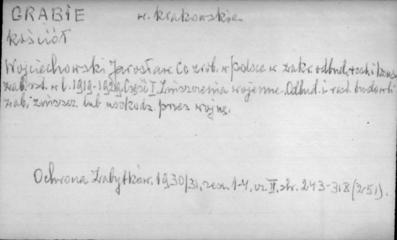 GRABIE w. krakowskie
Kościół
Wojciechowski Jarosław Co zrob. w Polsce w zakr. odbud. i
zab. w l. 1919-1929 Część I Zniszczenia wojenne. Odbud. i rest. budowli
zab. zniszcz. lub uszkodz. przez wojnę.
Ochrona Zabytków. 1930/31, zesz. 1-4, cz. II, str. 243-318 (251).